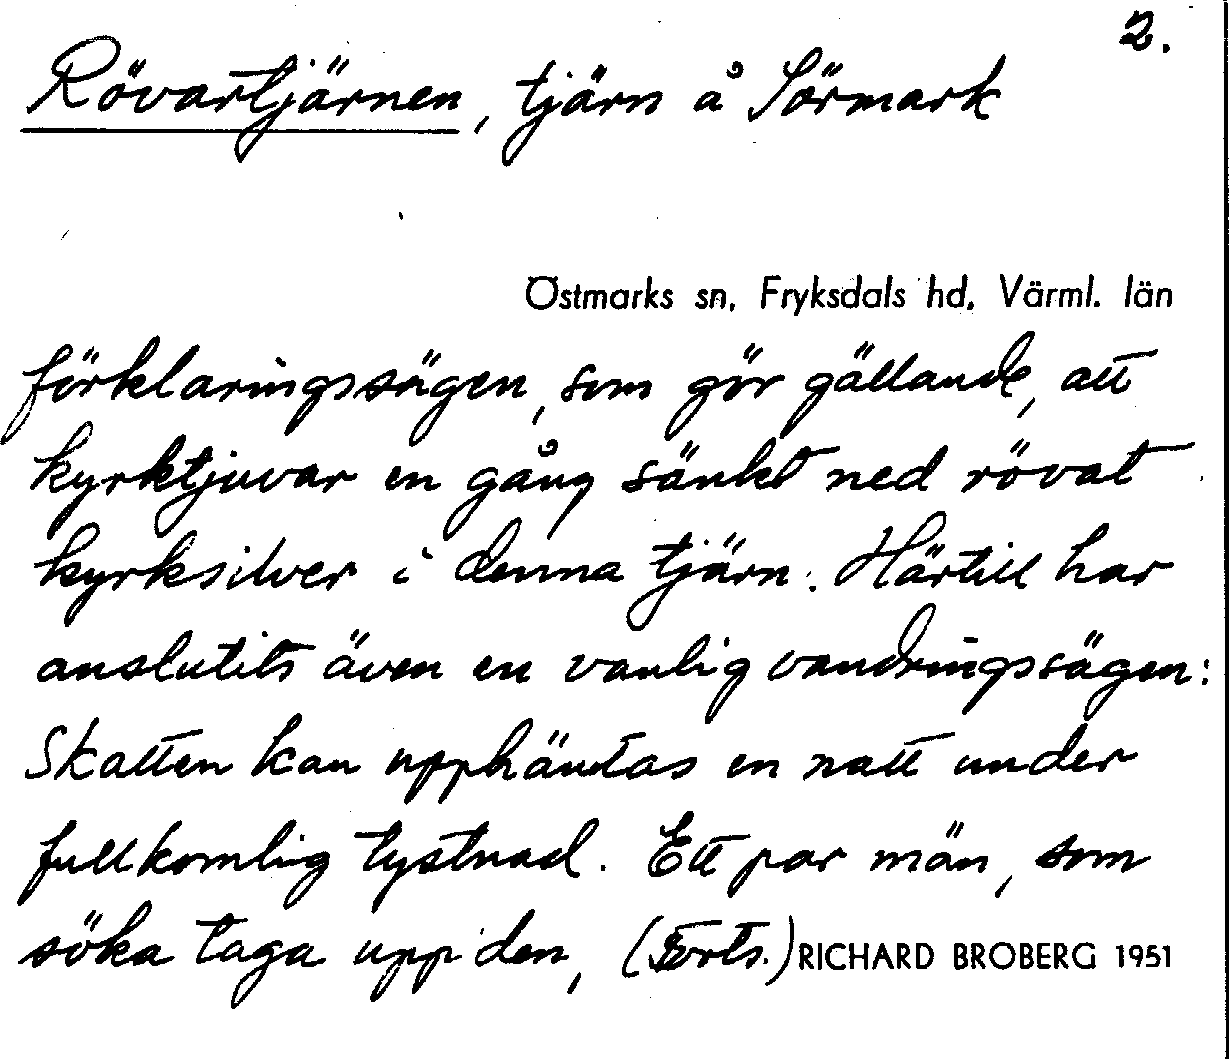 2.
Rövartjärnen, tjärn å Sörmark
Östmarks sn, Fryksdals hd, Värml. län
förklaringssägen, som gör gällande, att
kyrktjuvar en gång sänkt ned rövat
kyrksilver i denna tjärn. Härtill har
anslutits även en vanlig vandringssägen:
Skatten kan upphämtas en natt under
fullkomlig tystnad. Ett par män, som
söka taga upp den, (Forts.) RICHARD BROBERG 1951